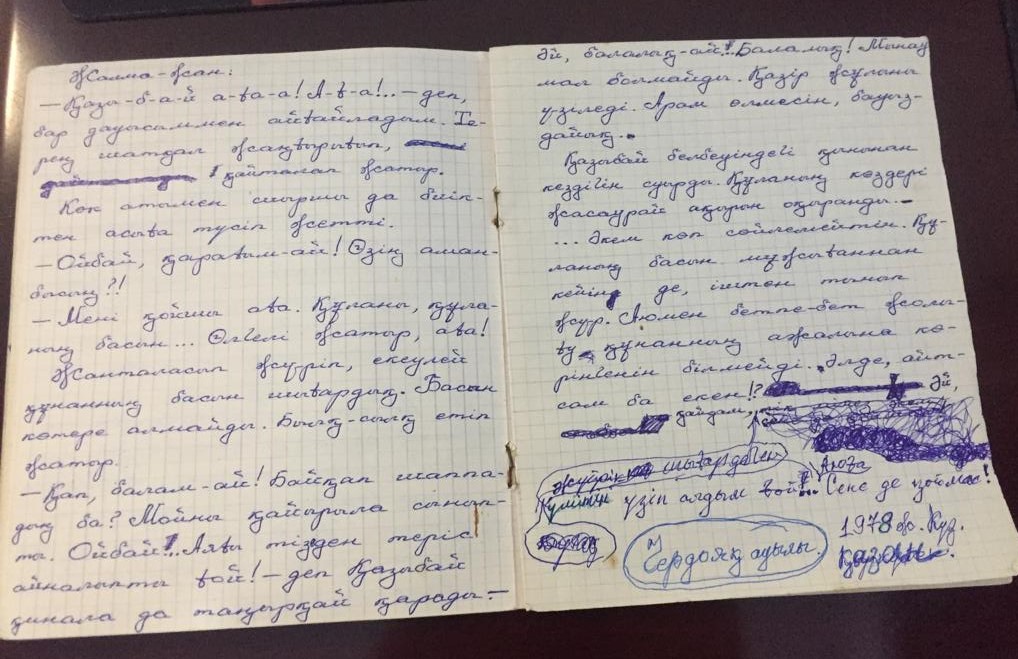 Жалма-жан:
— Қазы-б-а-й а-ға-а! А-ғ-а!.. — деп,
бар дауысыммен айғайладым. Те-
рең шатқал жаңғырығып,
қайталап жатыр.
Көк атымен сыршы да биік-
тен асыға түсіп жетті.
— Ойбай, қарағым-ай! Өзің аман-
бысың?!
— Мені қойшы аға. Құланы, құла-
ның басын... Өлгелі жатыр, аға!
Жанталасып жүріп, екеулей
құнанның басын шығардық. Басын
көтере алмайды. Былқ-сылқ етіп
жатыр.
— Қап, балам-ай! Байқап шаппа-
дың ба? Мойны қайырыла сынып-
ты. Ойбай!.. Аяғы тізеден теріс
айналыпты ғой! — деп Қазыбай
қинала да таңырқай қарады. —
Әй, балалық-ай!.. Балалық! Мынау
мал болмайды. Қазір жұлыны
үзіледі. Арам өлмесін, бауыз-
дайық...
Қазыбай белбеуіндегі қынынан
кездігін суырды. Құланың көздері
жасаурай ақырын оқыранды. —
... Әкем көп сөйлемейтін. Құ-
ланың басын мұжығаннан
кейін де, іштен тынап
жүр. Аюмен бетпе-бет жолы-
ғу құнанның ажалына кө-
рінгенін білмейді. Әлде, айт-
сам ба екен!? Әй,
қайдам,
шығар деген
үзіп алдым ғой!.. Аюға
Сенсе де қоймас!
Чердояқ ауылы.
1978 ж. Күз.
қазан.